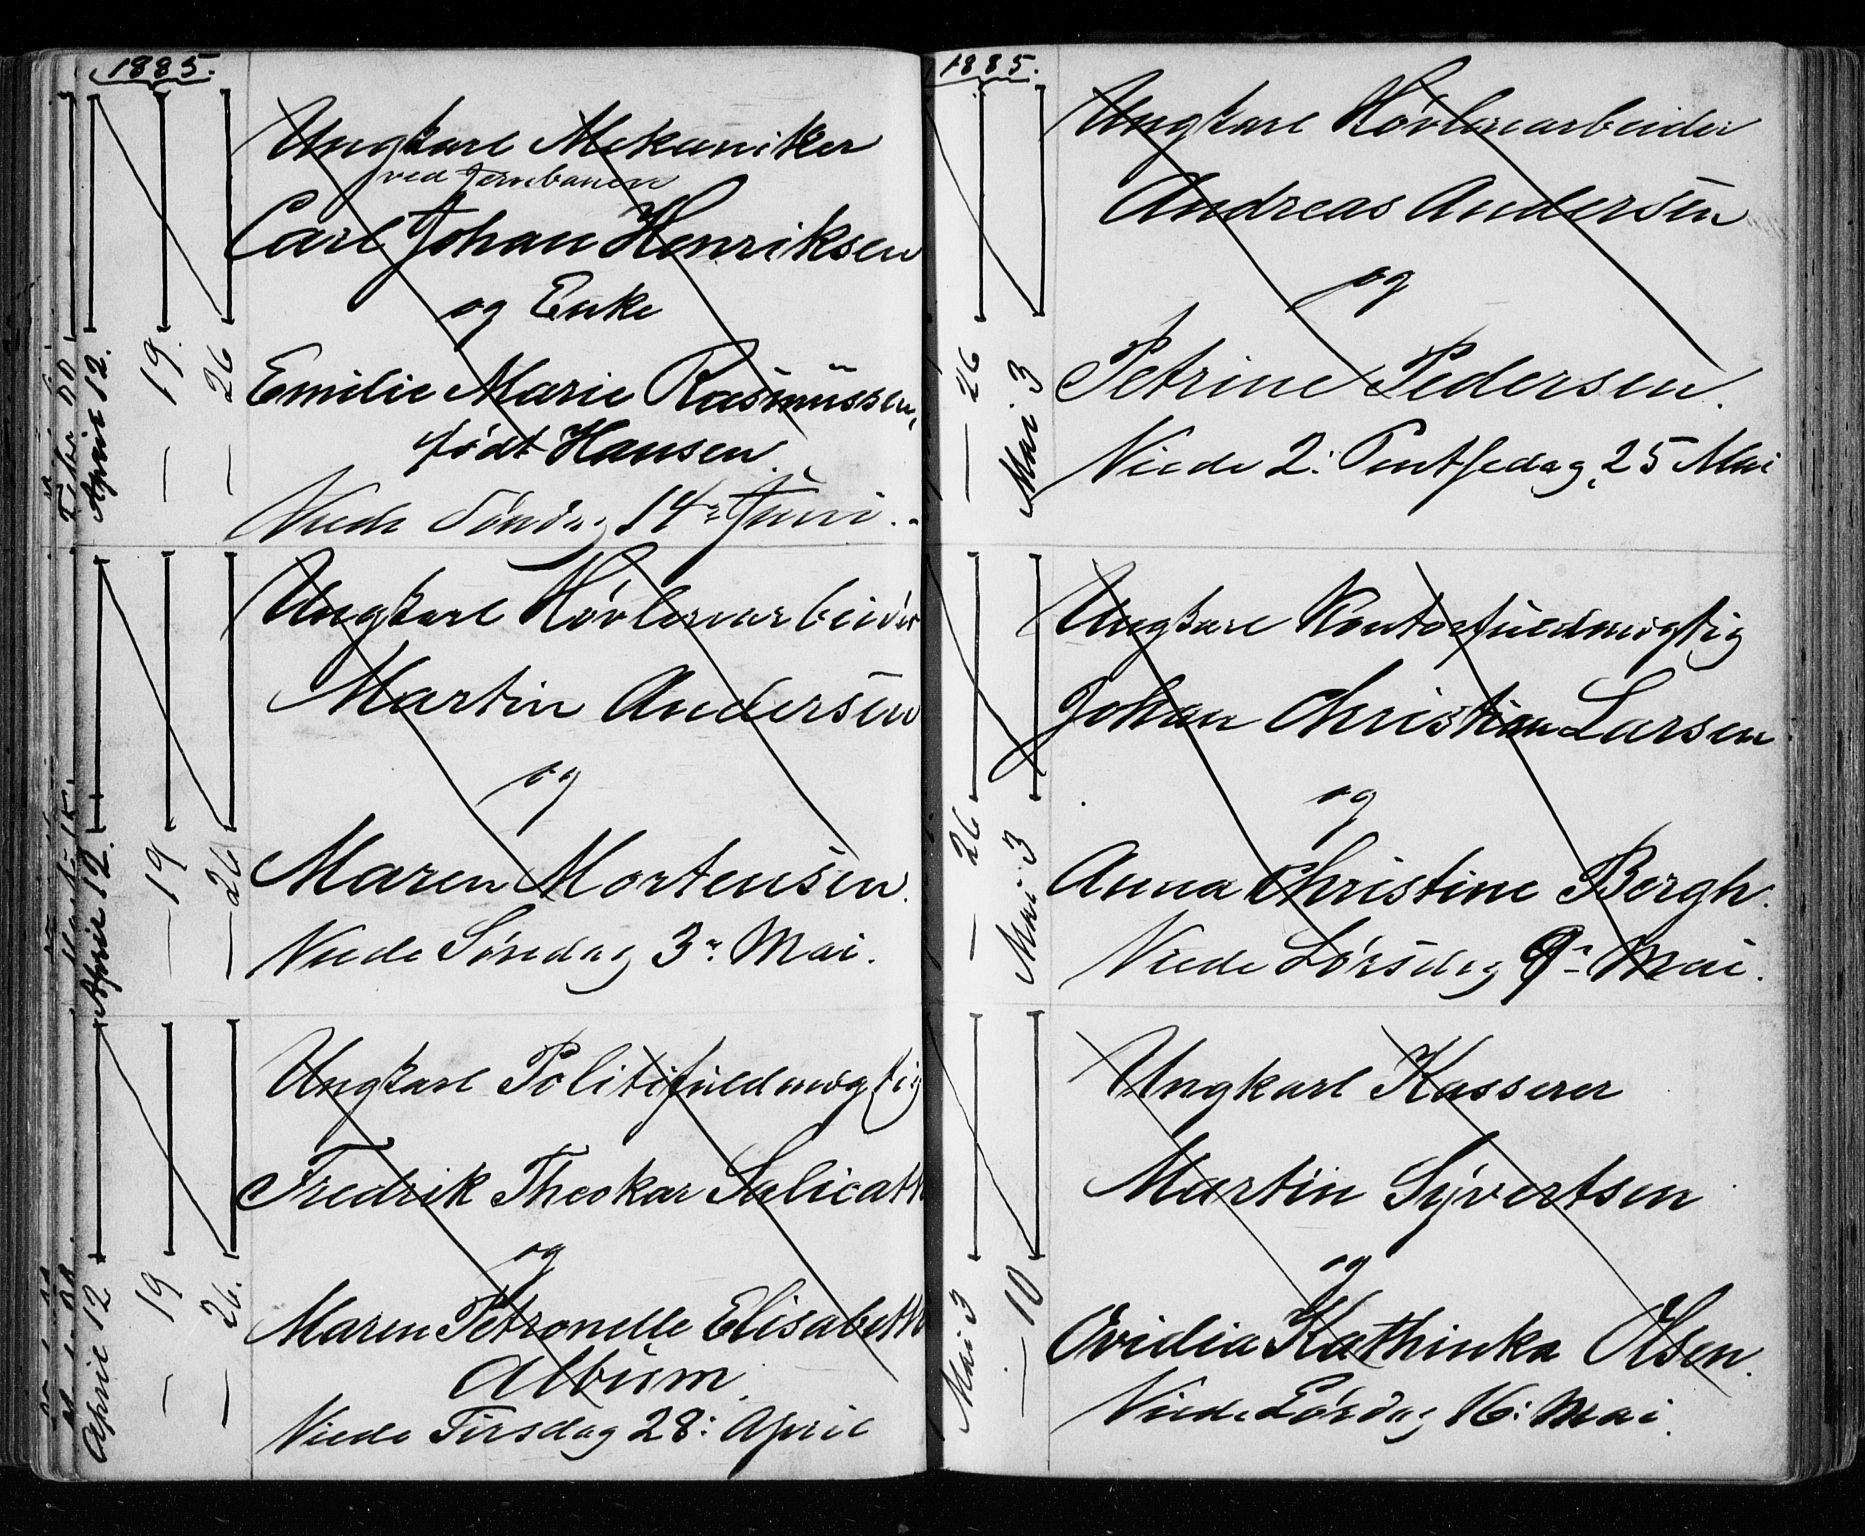 1885.
April 12.
— 19.
— 26
Ungkarl Mekaniker
ved Jernbanen
Carl Johan Henriksen
og Enke
Emilie Marie Rasmussen,
født Hansen.
Viede Søndag 14de Juni.
April 12.
— 19
— 26
Ungkarl Høvleriarbeider
Martin Andersen
og
Maren Mortensen.
Viede Søndag 3die Mai.
April 12
— 19
— 26.
Ungkarl Politifuldmægtig
Fredrik Theokar Salicath
og
Maren Petronelle Elisabeth
Album.
Viede Tirsdag 28: April
1885.
— 26
Mai 3
Ungkarl Høvleriarbeider
Andreas Andersen
og
Petrine Pedersen.
Viede 2: Pintsedag, 25 Mai
— 26
Mai 3
Ungkarl Kontorfuldmægtig
Johan Christian Larsen
og
Anna Christine Bergh.
Viede Lørsdag 9de Mai.
Mai 3
— 10
Ungkarl Kasserer
Martin Syvertsen
og
Ovidia Kathinka Olsen.
Viede Lørdag 16: Mai.